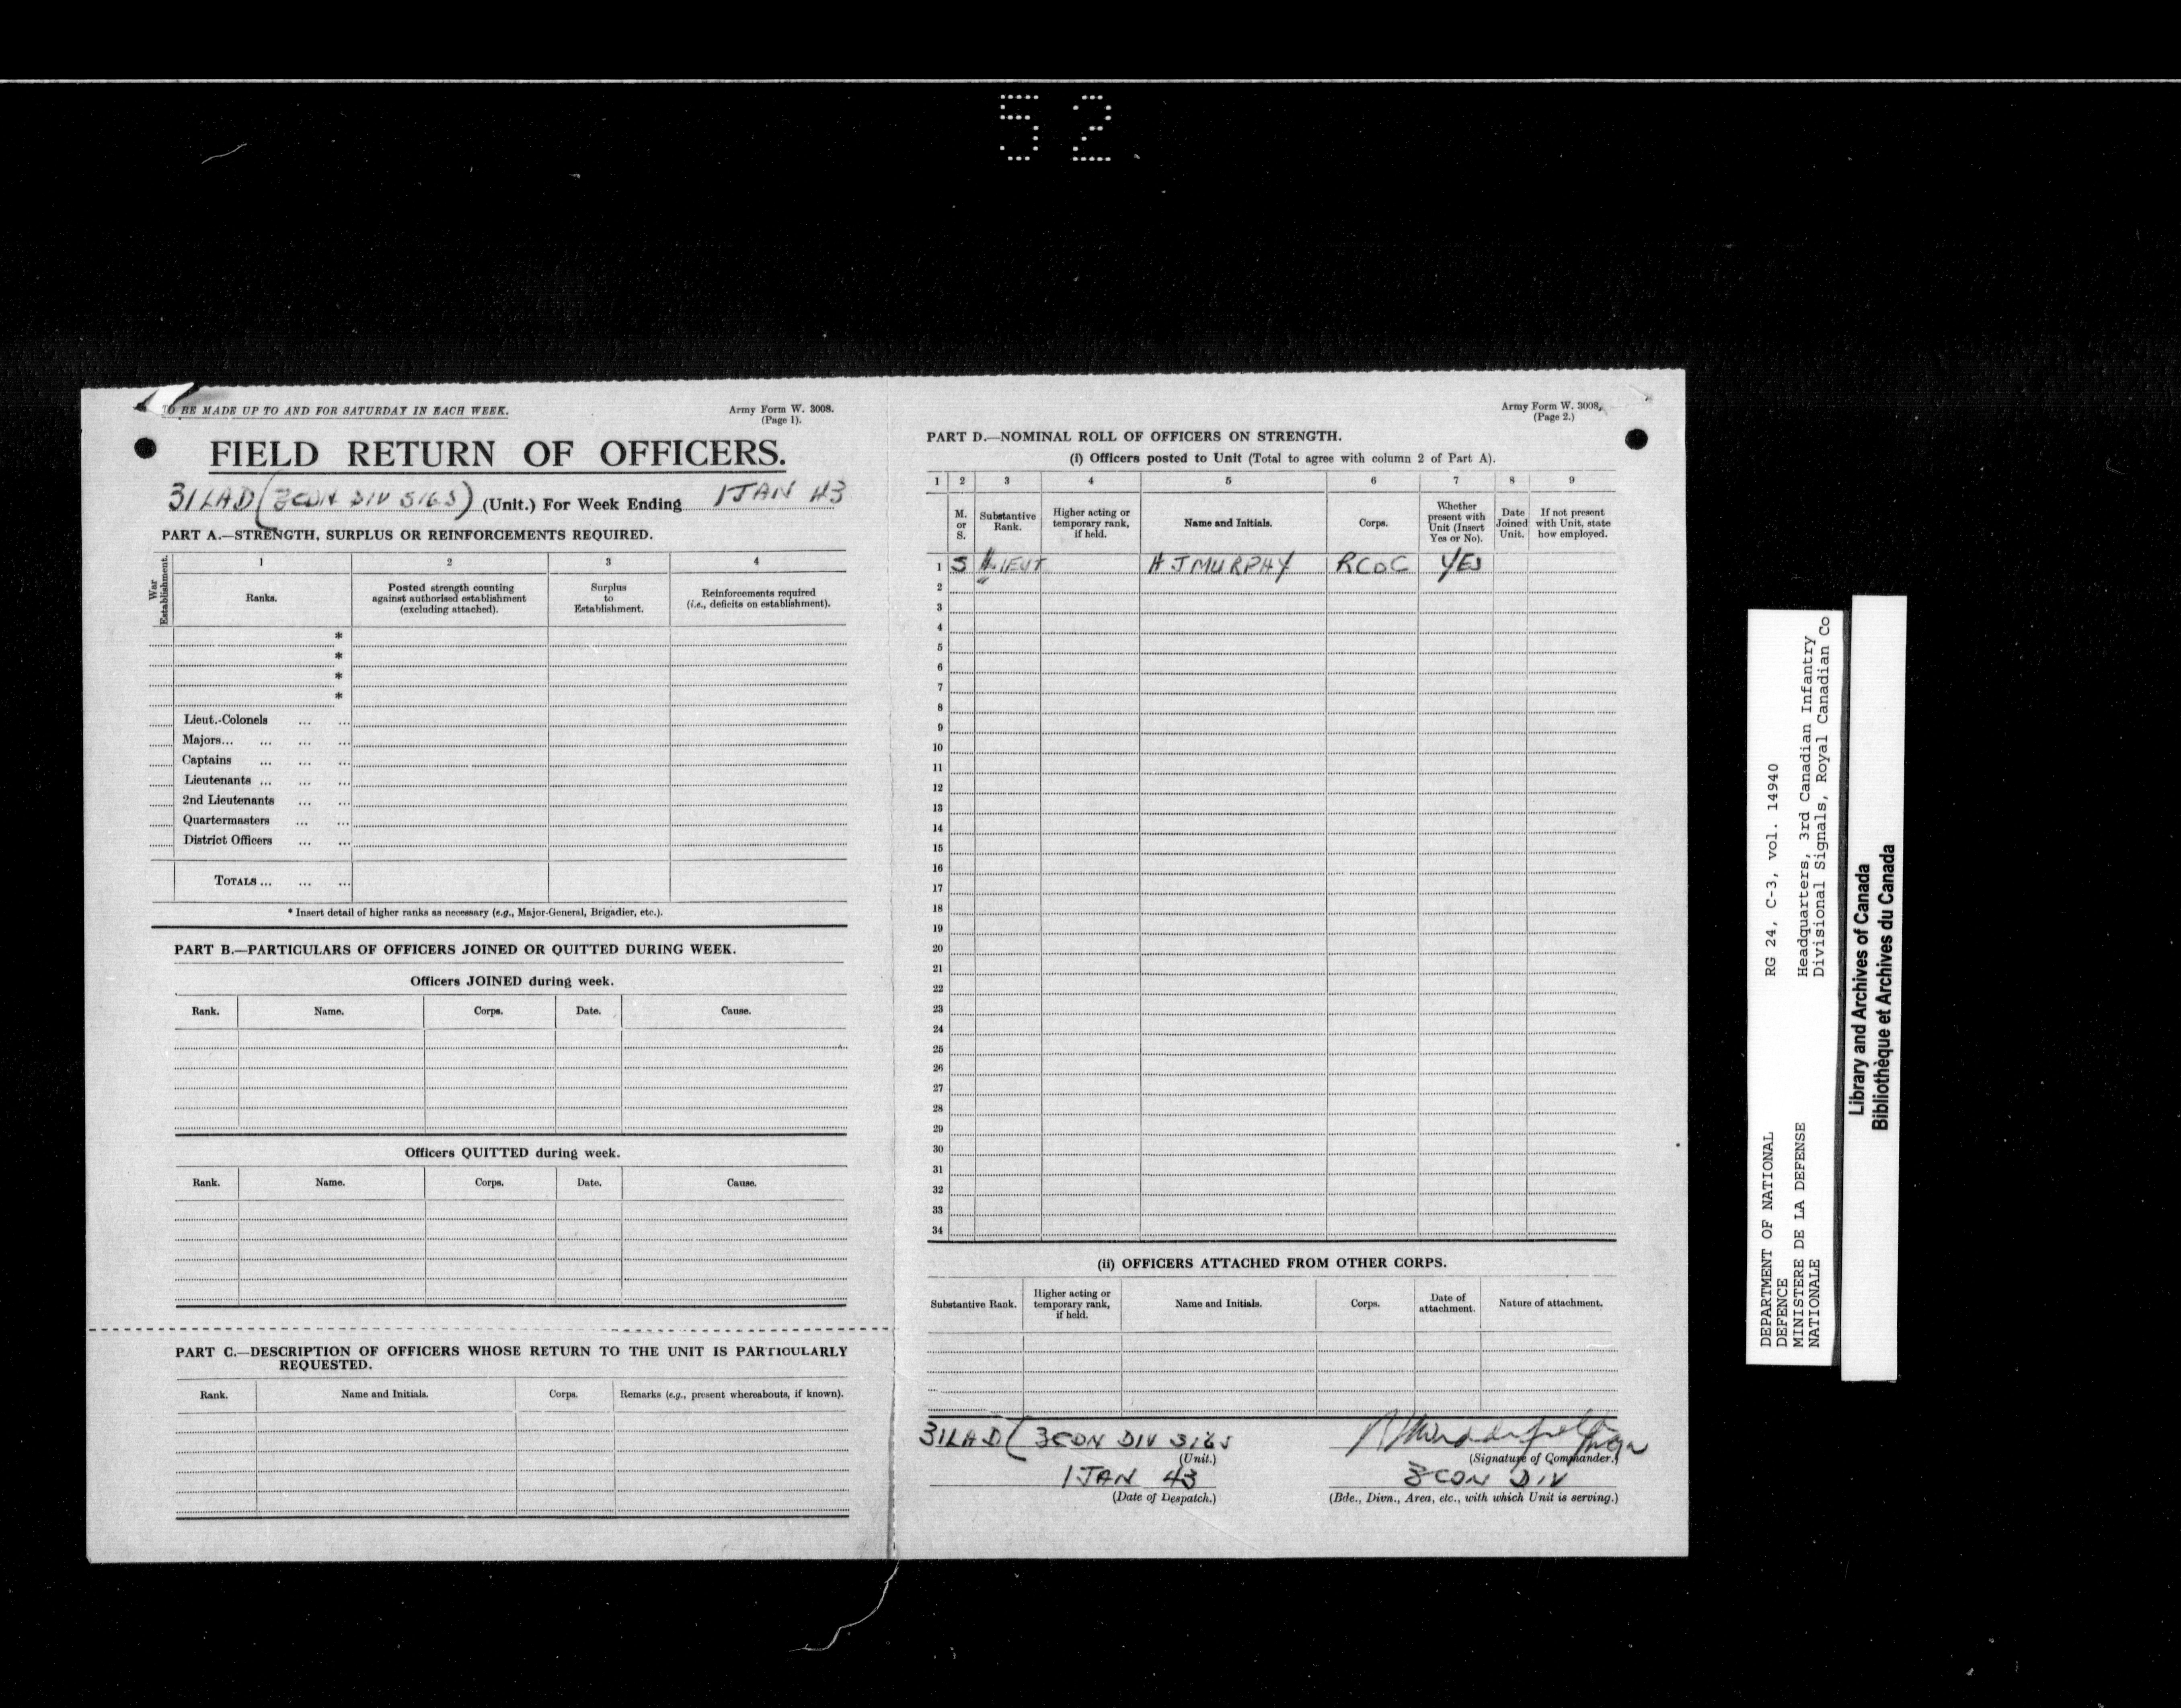 52
TO BE MADE UP TO AND FOR SATURDAY IN EACH WEEK.
Army Form W. 3008.
(Page 1).
FIELD RETURN OF OFFICERS.
31 LAD (3 CDN DIV SIGS) (Unit.) For Week Ending 1 JAN 43
PART A.—STRENGTH, SURPLUS OR REINFORCEMENTS REQUIRED.
War Establishment.
1 2 3 4
Ranks.
Posted strength counting against authorised establishment (excluding attached).
Surplus to Establishment.
Reinforcements required (i.e., deficits on establishment).
*
*
*
*
Lieut.-Colonels ... ...
Majors... ... ... ...
Captains ... ... ...
Lieutenants ... ... ...
2nd Lieutenants ... ...
Quartermasters ... ...
District Officers ... ...
TOTALS ... ... ...
* Insert detail of higher ranks as necessary (e.g., Major-General, Brigadier, etc.).
PART B.—PARTICULARS OF OFFICERS JOINED OR QUITTED DURING WEEK.
Officers JOINED during week.
Rank. Name. Corps. Date. Cause.
Officers QUITTED during week.
Rank. Name. Corps. Date. Cause.
PART C.—DESCRIPTION OF OFFICERS WHOSE RETURN TO THE UNIT IS PARTICULARLY
REQUESTED.
Rank. Name and Initials. Corps. Remarks (e.g., present whereabouts, if known).
Army Form W. 3008.
(Page 2.)
PART D.—NOMINAL ROLL OF OFFICERS ON STRENGTH.
(i) Officers posted to Unit (Total to agree with column 2 of Part A).
1 2 3 4 5 6 7 8 9
M. or S.
Substantive Rank.
Higher acting or temporary rank, if held.
Name and Initials.
Corps.
Whether present with Unit (Insert Yes or No).
Date Joined Unit.
If not present with Unit, state how employed.
1 S LIEUT H J MURPHY RCOC YES
2
3
4
5
6
7
8
9
10
11
12
13
14
15
16
17
18
19
20
21
22
23
24
25
26
27
28
29
30
31
32
33
34
(ii) OFFICERS ATTACHED FROM OTHER CORPS.
Substantive Rank.
Higher acting or temporary rank, if held.
Name and Initials.
Corps.
Date of attachment.
Nature of attachment.
31 LAD (3 CDN DIV SIGS
(Unit.)
(Signature of Commander.)
1 JAN 43
3 CDN DIV
(Date of Despatch.)
(Bde., Divn., Area, etc., with which Unit is serving.)
DEPARTMENT OF NATIONAL
DEFENCE
MINISTERE DE LA DEFENSE
NATIONALE
RG 24, C-3, vol. 14940
Headquarters, 3rd Canadian Infantry
Divisional Signals, Royal Canadian Co
Library and Archives of Canada
Bibliothèque et Archives du Canada